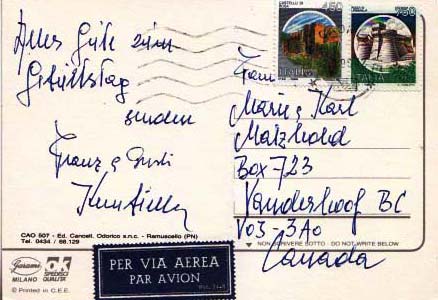 Alles Gute zum
Geburtstag
senden
Franz & Gusti
CASTELLO DI
450
ITALIA
750
ITALIA
Fam.
Marie & Karl
Matzhold
Box 723
Vanderhoof BC
V0J-3A0
Canada
CAO 507 - Ed. Cancell. Odorico s.n.c. - Ramuscello (PN)
Tel. 0434 / 68.129
NON SCRIVERE SOTTO DO NOT WRITE BELOW
Garami
MILANO
SPEDISCI
QUALITÀ
© Printed in C.E.E.
PER VIA AEREA
PAR AVION